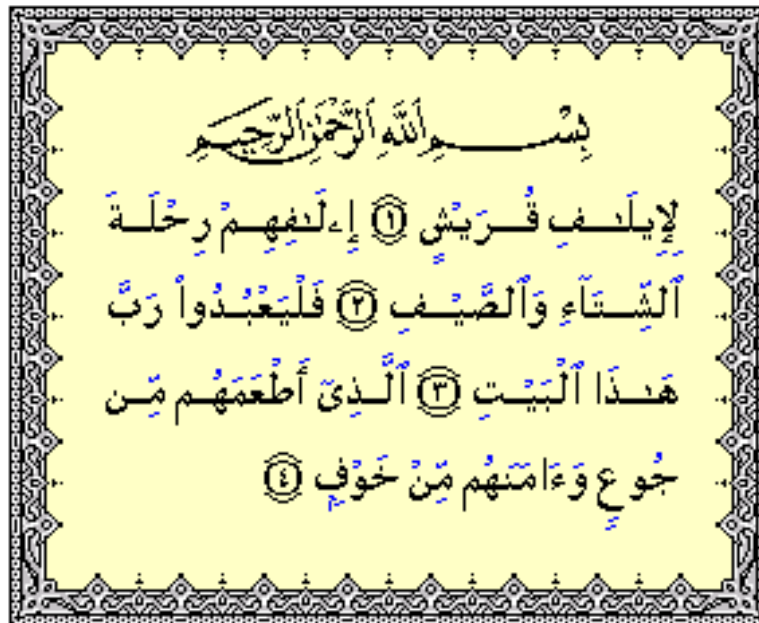 بِسْمِ ٱللَّهِ ٱلرَّحْمَٰنِ ٱلرَّحِيمِ
لِإِيلَٰفِ قُرَيْشٍ ١ إِۦلَٰفِهِمْ رِحْلَةَ
ٱلشِّتَآءِ وَٱلصَّيْفِ ٢ فَلْيَعْبُدُوا۟ رَبَّ
هَٰذَا ٱلْبَيْتِ ٣ ٱلَّذِىٓ أَطْعَمَهُم مِّن
جُوعٍ وَءَامَنَهُم مِّنْ خَوْفٍۭ ٤